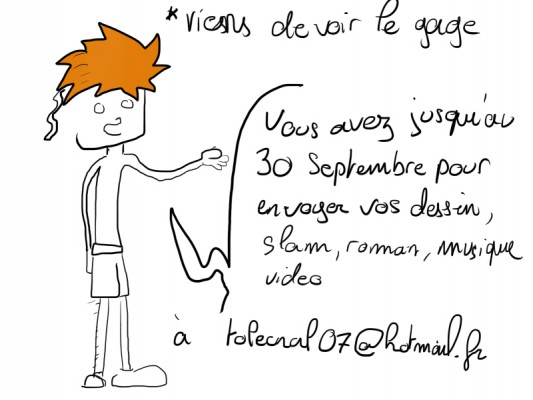 *viens de voir le gage
Vous avez jusqu'au
30 Septembre pour
envoyer vos dessin,
slam, roman, musique
video
à tolecnal07@hotmail.fr